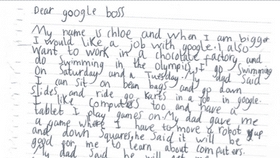 Dear google boss
My name is Chloe and when I am bigger
I would like a job with google. I also
want to work in a chocolate factory and
do swimming in the olympics. I go swimming
on Saturday and a Tuesday. My dad said
I can sit on bean bags and go down
slides and ride go karts in a job in google.
I like computers too and have a
tablet I play games on. My dad gave me
a game where I have to move a robot up
and down squares, he said it will be
good for me to learn about computers.
My dad said he will get